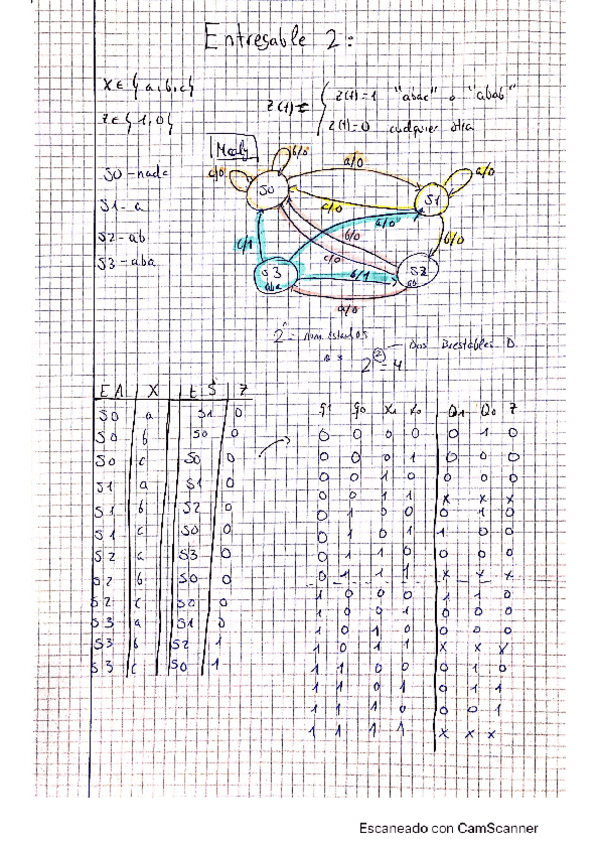 Entregable 2:
X ∈ {a,b,c}
Z ∈ {1,0}
Z(t) = { Z(t)=1 "abac" o "abab"
Z(t)=0 cualquier otra
Mealy
S0 - nada
S1 - a
S2 - ab
S3 - aba
c/0 b/0 S0 a/0 S1 a/0
c/0 a/0 b/0
c/1 b/0 c/0
S3 aba b/1 S2 ab
a/0
2^n = num. estados
2^2 = 4 Dos Biestables D
EA X ES Z
S0 a S1 0
S0 b S0 0
S0 c S0 0
S1 a S1 0
S1 b S2 0
S1 c S0 0
S2 a S3 0
S2 b S0 0
S2 c S0 0
S3 a S1 0
S3 b S2 1
S3 c S0 1
q1 q0 x1 x0 Q1 Q0 Z
0 0 0 0 0 1 0
0 0 0 1 0 0 0
0 0 1 0 0 0 0
0 0 1 1 x x x
0 1 0 0 0 1 0
0 1 0 1 1 0 0
0 1 1 0 0 0 0
0 1 1 1 x x x
1 0 0 0 1 1 0
1 0 0 1 0 0 0
1 0 1 0 0 0 0
1 0 1 1 x x x
1 1 0 0 0 1 0
1 1 0 1 0 1 1
1 1 1 0 0 0 1
1 1 1 1 x x x
Escaneado con CamScanner